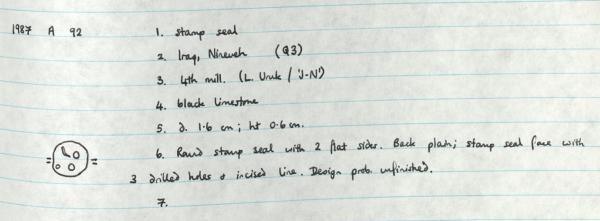 1987 A 92
1. stamp seal
2. Iraq, Nineveh (Q3)
3. 4th mill. (L. Uruk / 'J-N')
4. black limestone
5. d. 1.6 cm; ht 0.6 cm.
6. Round stamp seal with 2 flat sides. Back plain; stamp seal face with
3 drilled holes & incised line. Design prob. unfinished.
7.